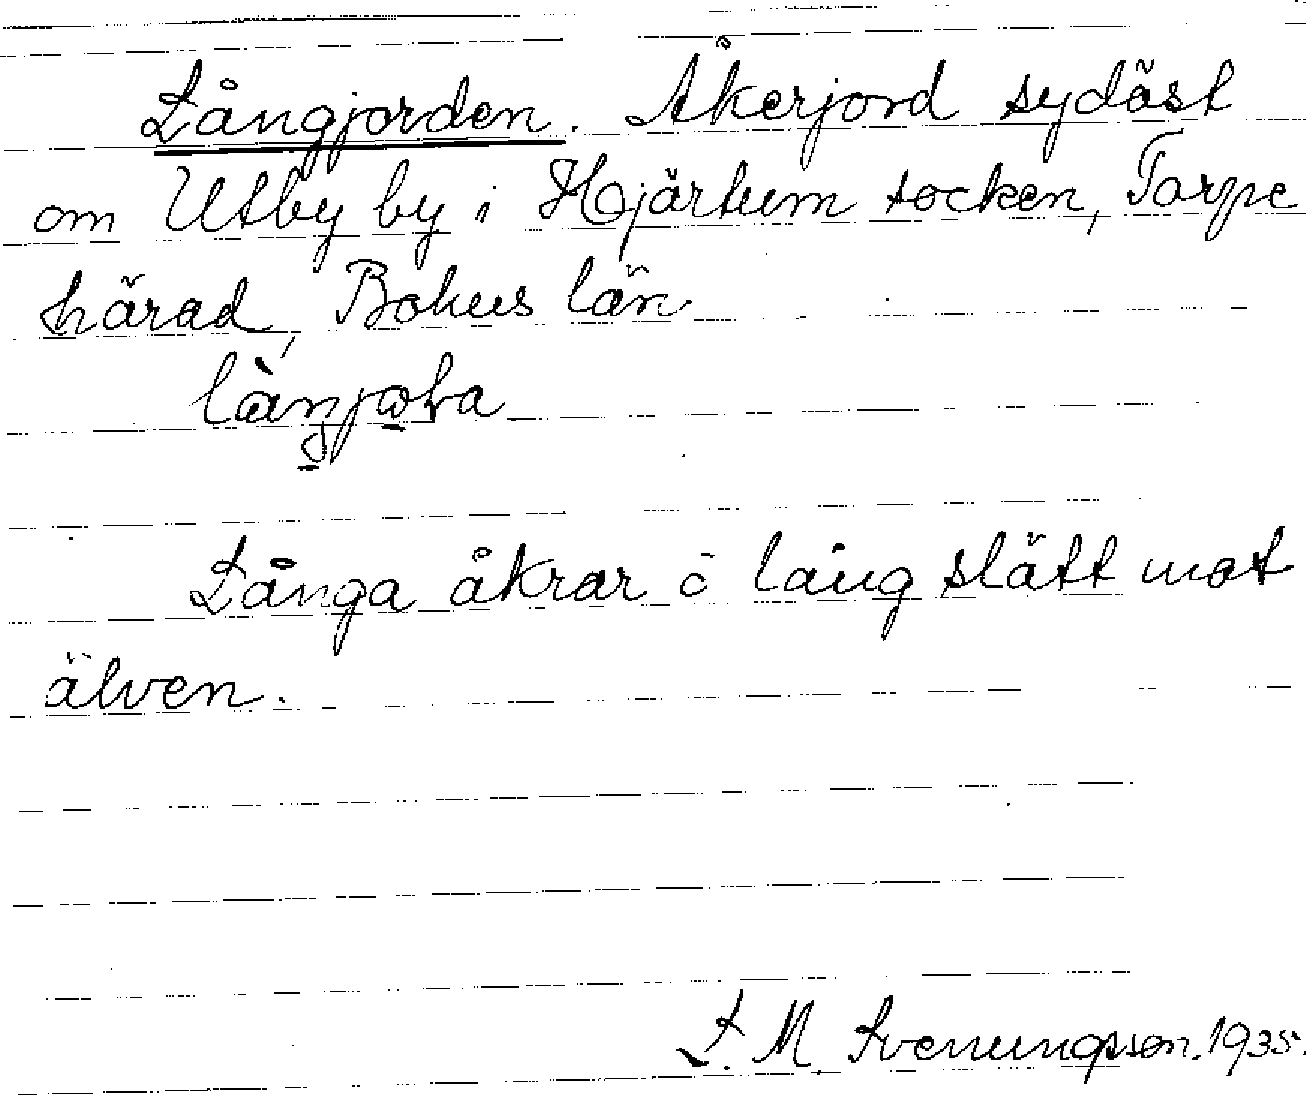 Långjorden. Åkerjord sydöst
om Utby by i Hjärtum socken, Torpe
härad, Bohus län
Långa åkrar å lång slätt mot
älven.
L. M. Svenungsson. 1935.